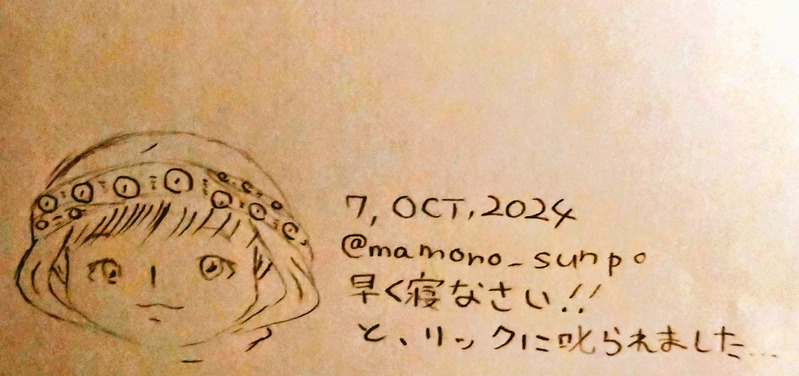 7, OCT, 2024
@mamono_sunpo
早く寝なさい!!
と、リックに叱られました...